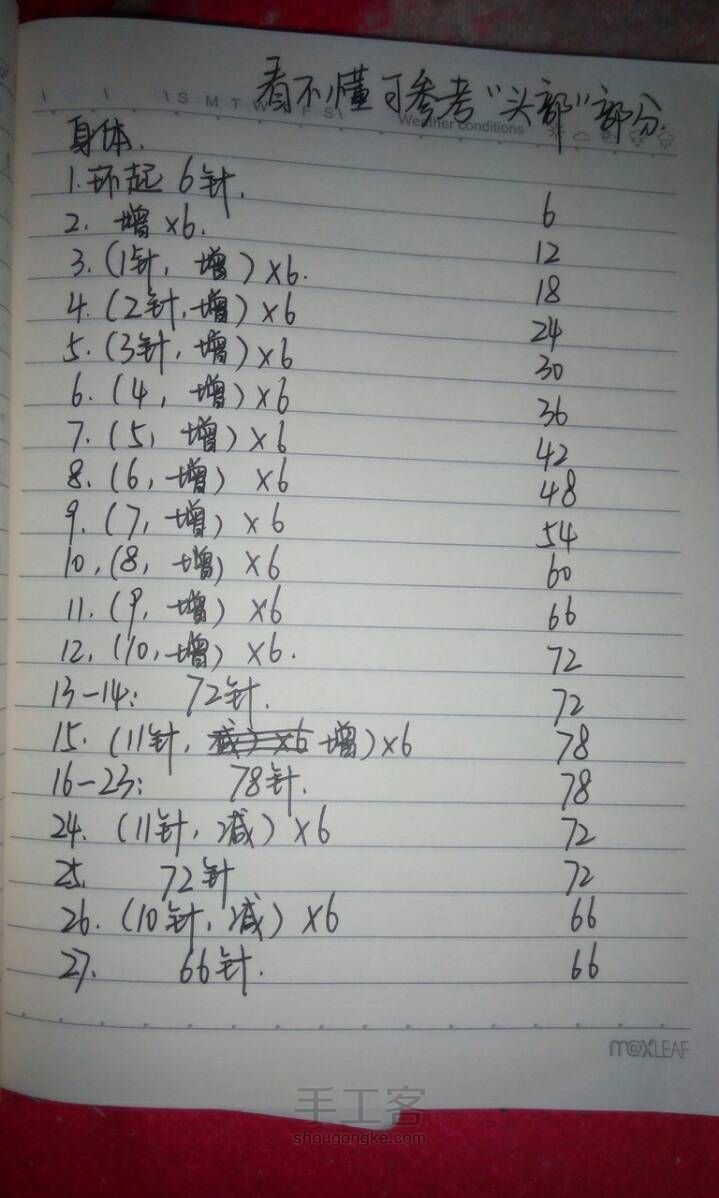 看不懂可参考“头部”部分.
S M T W F S
Weather conditions
身体.
1.环起 6针. 6
2. 增×6. 12
3.(1针, 增)×6. 18
4.(2针,增)×6 24
5.(3针,增)×6 30
6.(4, 增)×6 36
7.(5, 增)×6 42
8.(6,增) ×6 48
9.(7,增) ×6 54
10,(8, 增)×6 60
11.(9, 增) ×6 66
12,(10,增) ×6. 72
13-14: 72针. 72
15.(11针, 减)×6 增)×6 78
16-23: 78针. 78
24. (11针, 减)×6 72
25. 72针 72
26.(10针,减)×6 66
27. 66针. 66
m@xLEAF
手工客
shougongke.com